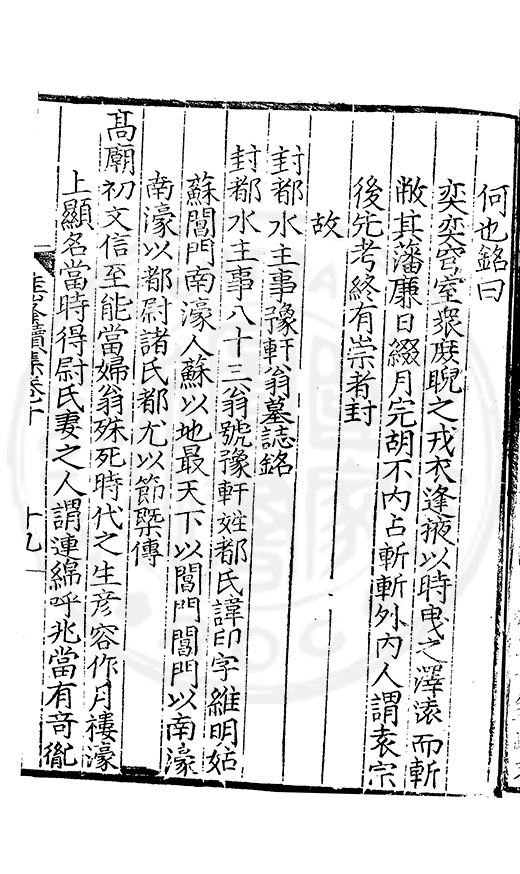 何也銘曰
奕奕穹室衆庶睨之戎衣逢掖以時曳之澤遠而斬
敝其藩廉日綴月完胡不內占斬斬外內人謂袁宗
後先考終有崇者封
故
封都水主事豫軒翁墓誌銘
封都水主事八十三翁號豫軒姓都氏諱卬字維明姑
蘇閶門南濠人蘇以地最天下以閶門閶門以南濠
南濠以都尉諸氏都尤以節槩傳
高廟初文信至能當婦翁殊死時代之生彦容作月樓濠
上顯名當時得尉氏妻之人謂連綿呼兆當有奇胤
續集卷十
十九